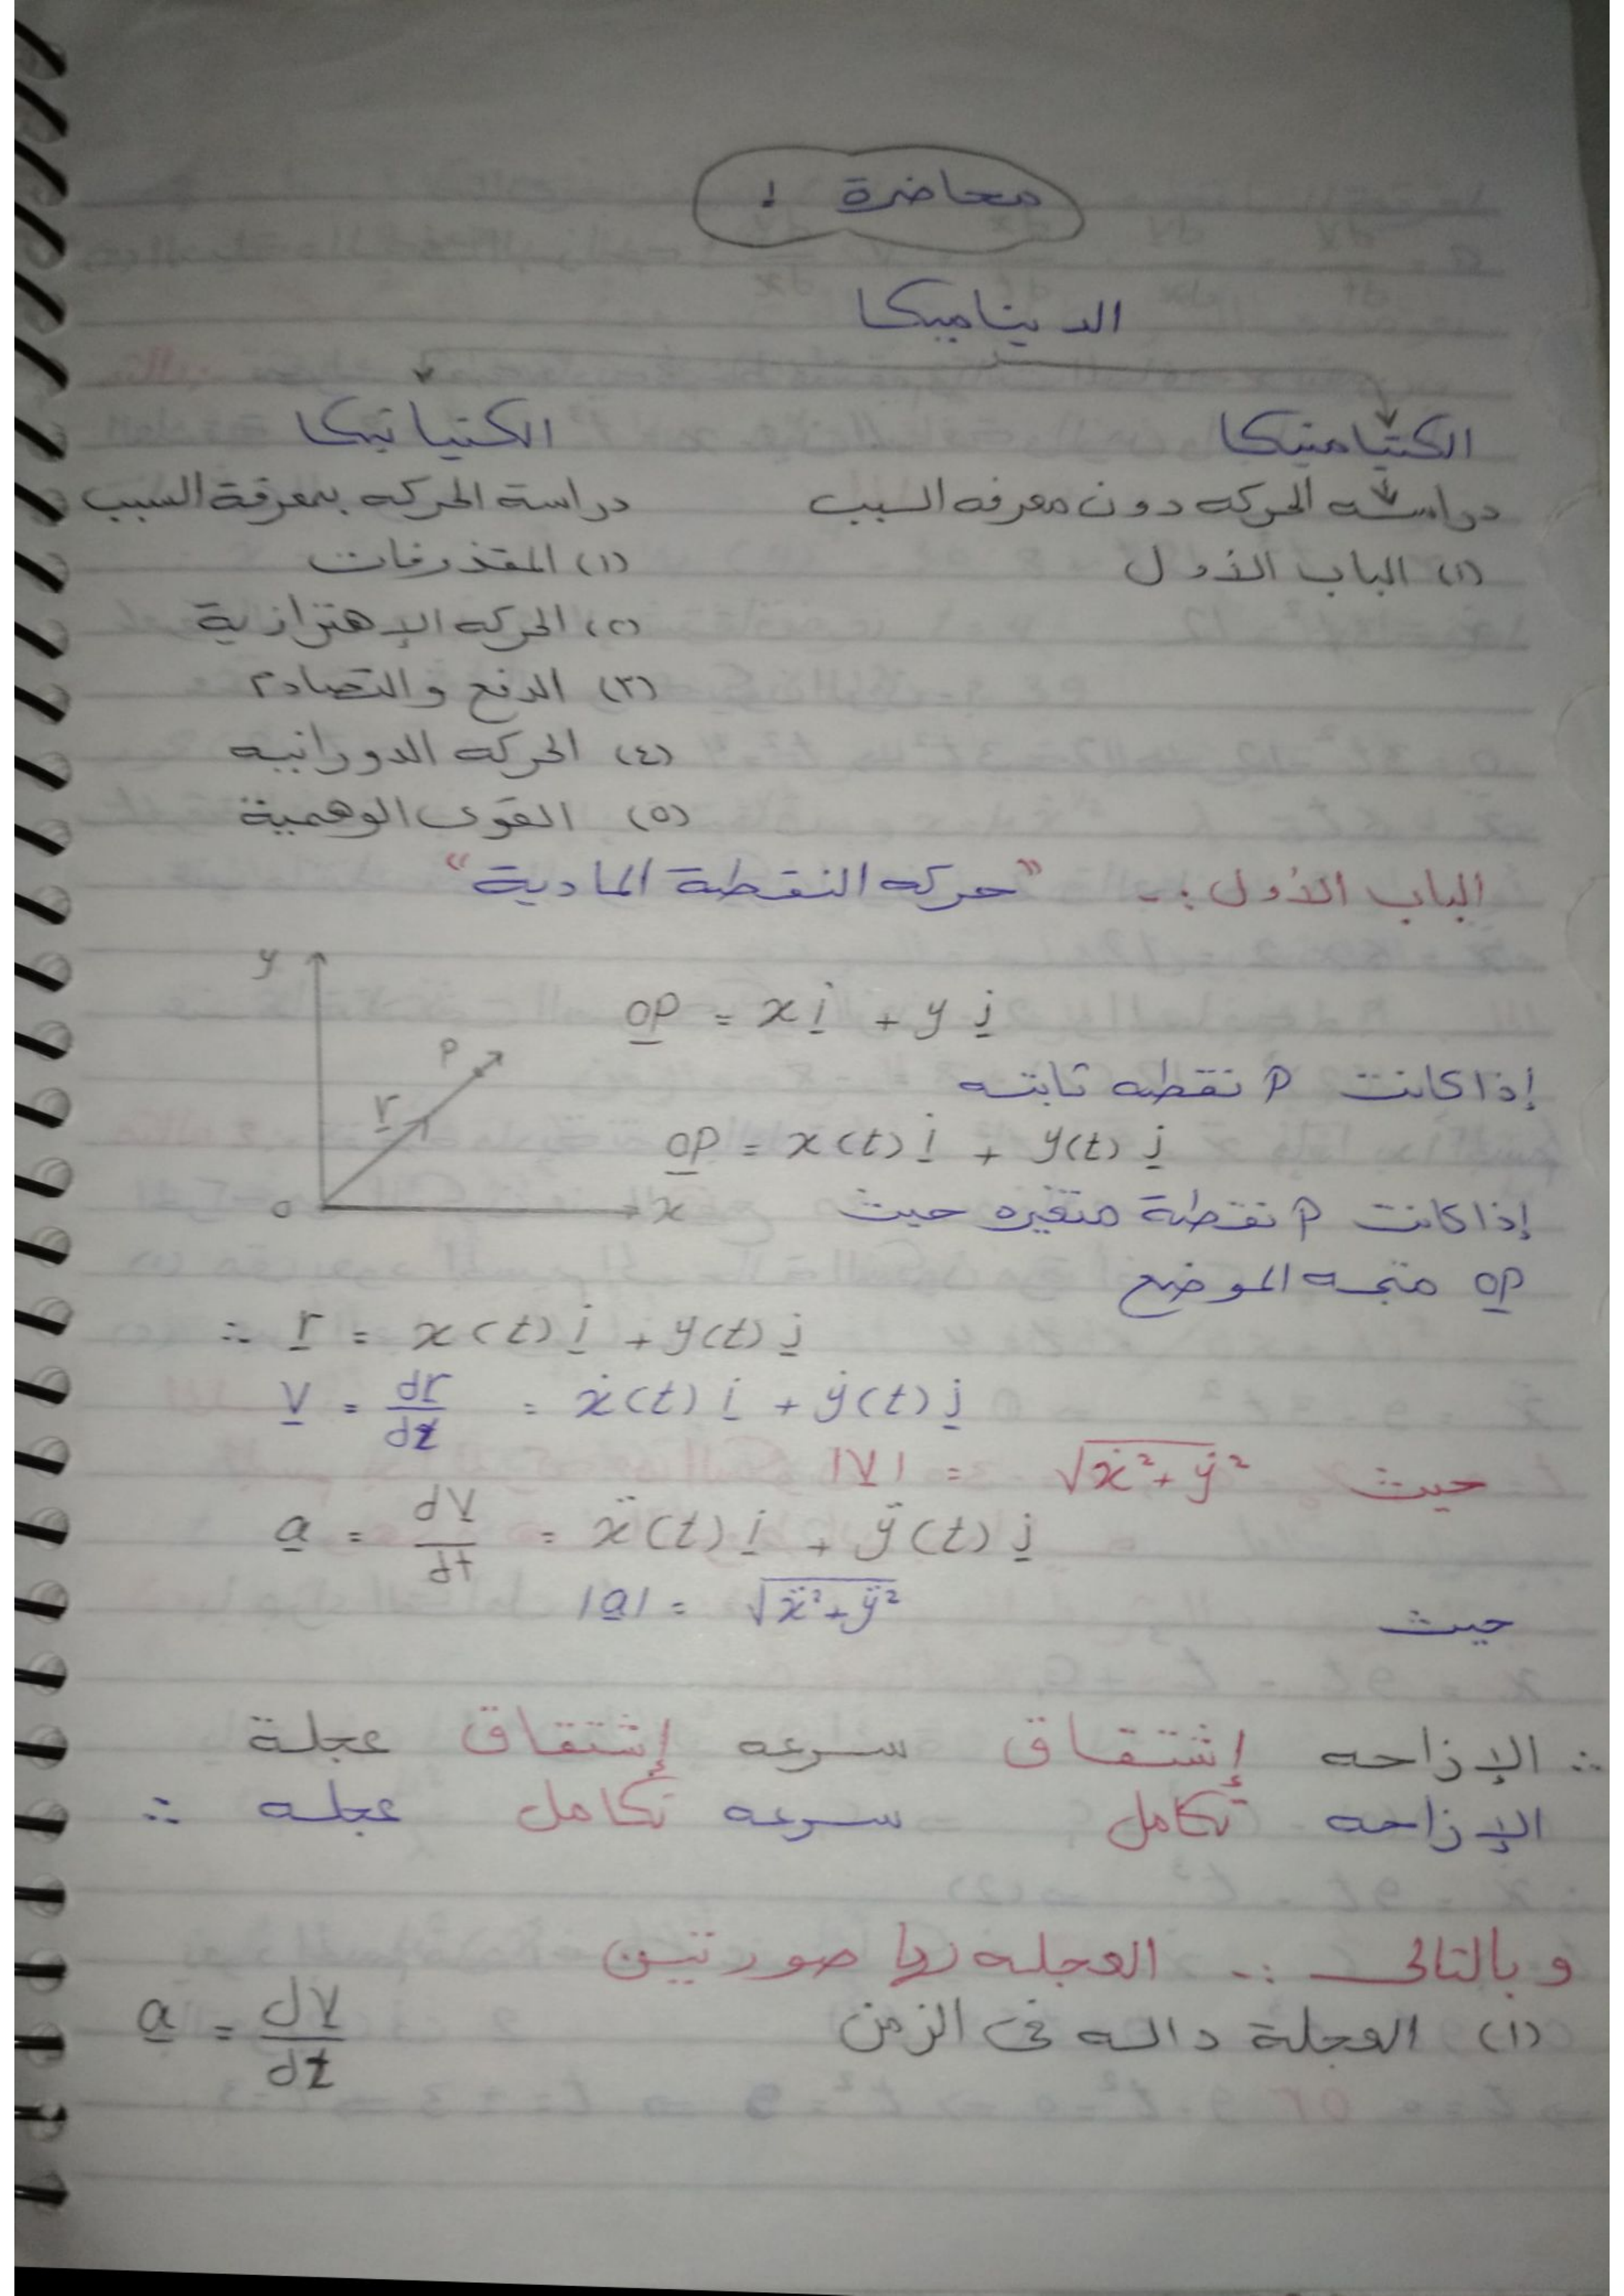 محاضرة ١
الديناميكا
الكينامتيكا
الكنياتيكا
دراسه الحركه دون معرفه السبب
دراسة الحركه بمعرفة السبب
(١) الباب الأول
(١) المقذوفات
(٢) الحركه الإهتزازية
(٣) الدفع والتصادم
(٤) الحركه الدورانيه
(٥) القوى الوهمية
الباب الأول :- "حركه النقطة المادية"
y
P
r
o
x
op = x i + y j
إذا كانت P نقطه ثابته
op = x(t) i + y(t) j
إذا كانت P نقطة متغيره حيث
op متجه الموضع
∴ r = x(t) i + y(t) j
v = dr/dt = ẋ(t) i + ẏ(t) j
حيث |v| = √ẋ² + ẏ²
a = dv/dt = ẍ(t) i + ÿ(t) j
حيث |a| = √ẍ² + ÿ²
∴ الإزاحه إشتقاق سرعه إشتقاق عجلة
الإزاحه تكامل سرعه تكامل عجله ∴
وبالتالى :- العجله لها صورتين
(١) العجلة داله فى الزمن a = dv/dt